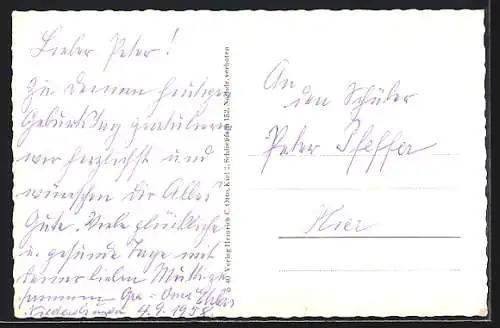 Lieber Peter!
Zu deinem heutigen
Geburtstag gratulieren
wir herzlichst und
wünschen dir Alles
Gute. Viele glückliche
u. gesunde Tage mit
deiner lieben Mutti zu-
sammen Opa - Oma
4.9.1958
Verlag Heinrich C. Otto, Kiel 2, Schließfach 152. Nachdr. verboten
An
den Schüler
Peter Pfeffer
Hier